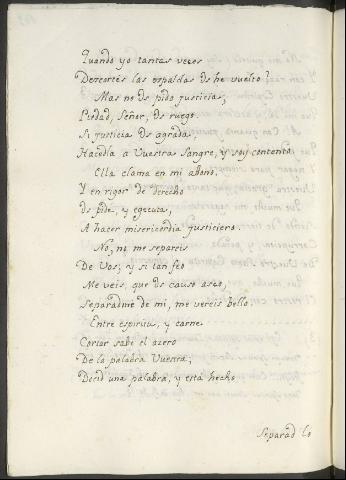 Quando yo tantas veces
Descortés las espaldas os he vuelto?
Mas no os pido justicias,
Piedad, Señor, os ruego
Si justicia os agrada,
Hacedla a Vuestra Sangre, y soy contento.
Ella clama en mi abono,
Y en rigor de derecho
Os pide, y egecuta,
A hacer misericordia justiciero.
No, no me separeis
De Vos; y si tan feo
Me veis, que os causo asco,
Separadme de mi, me vereis bello.
Entre espiritu, y carne
Cortar sabe el azero
De la palabra Vuestra;
Decid una palabra, y está hecho.
Separad lo